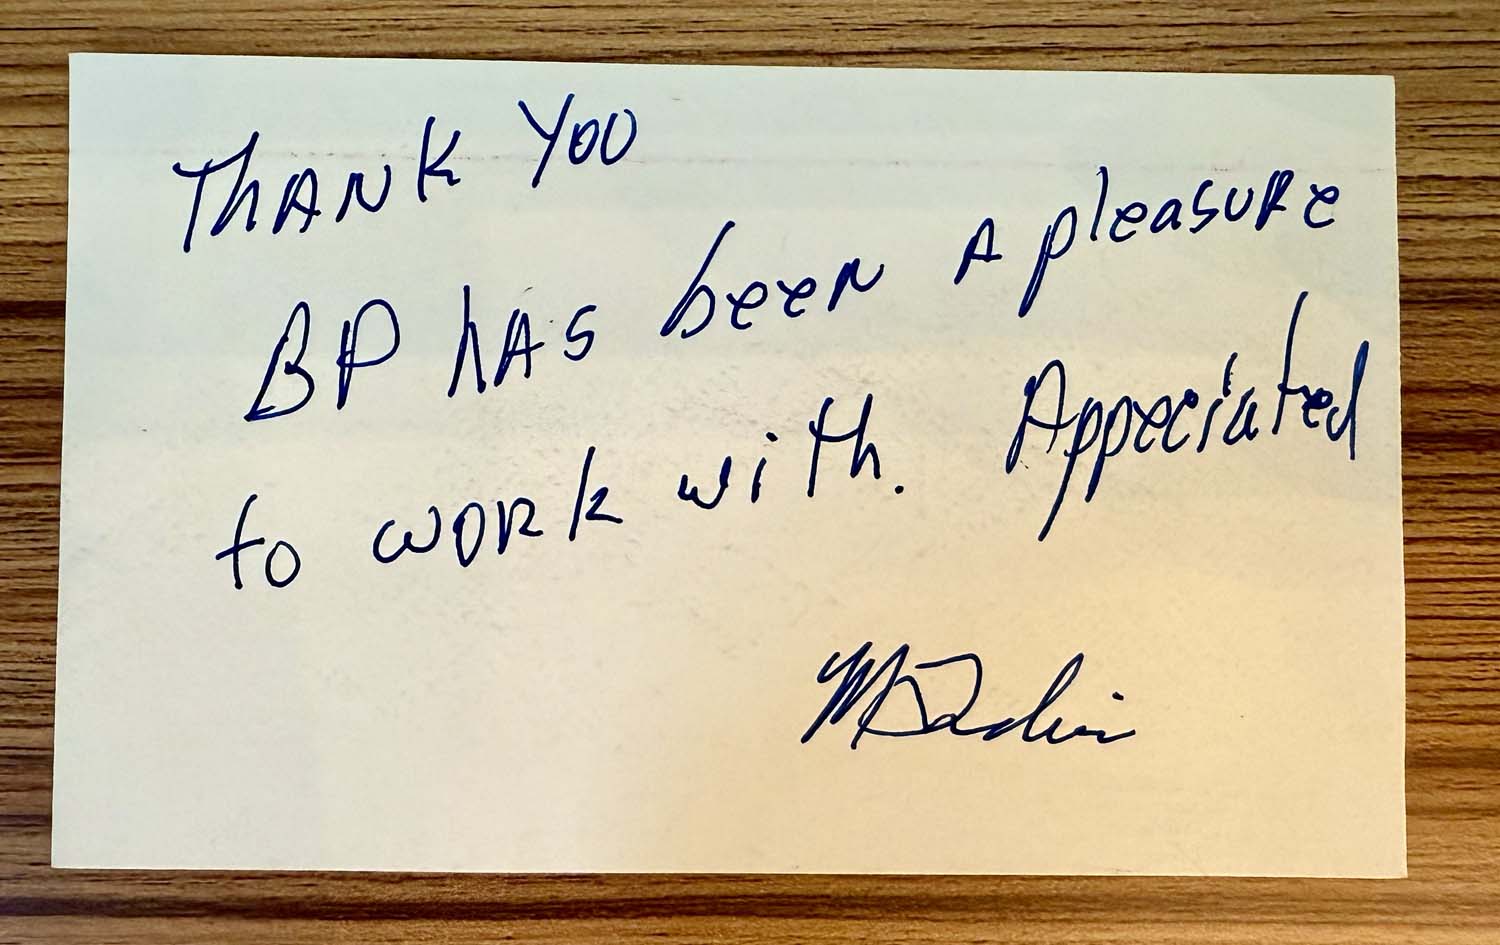 THANK YOU
BP hAS been A pleasure
to work with. Appeciated